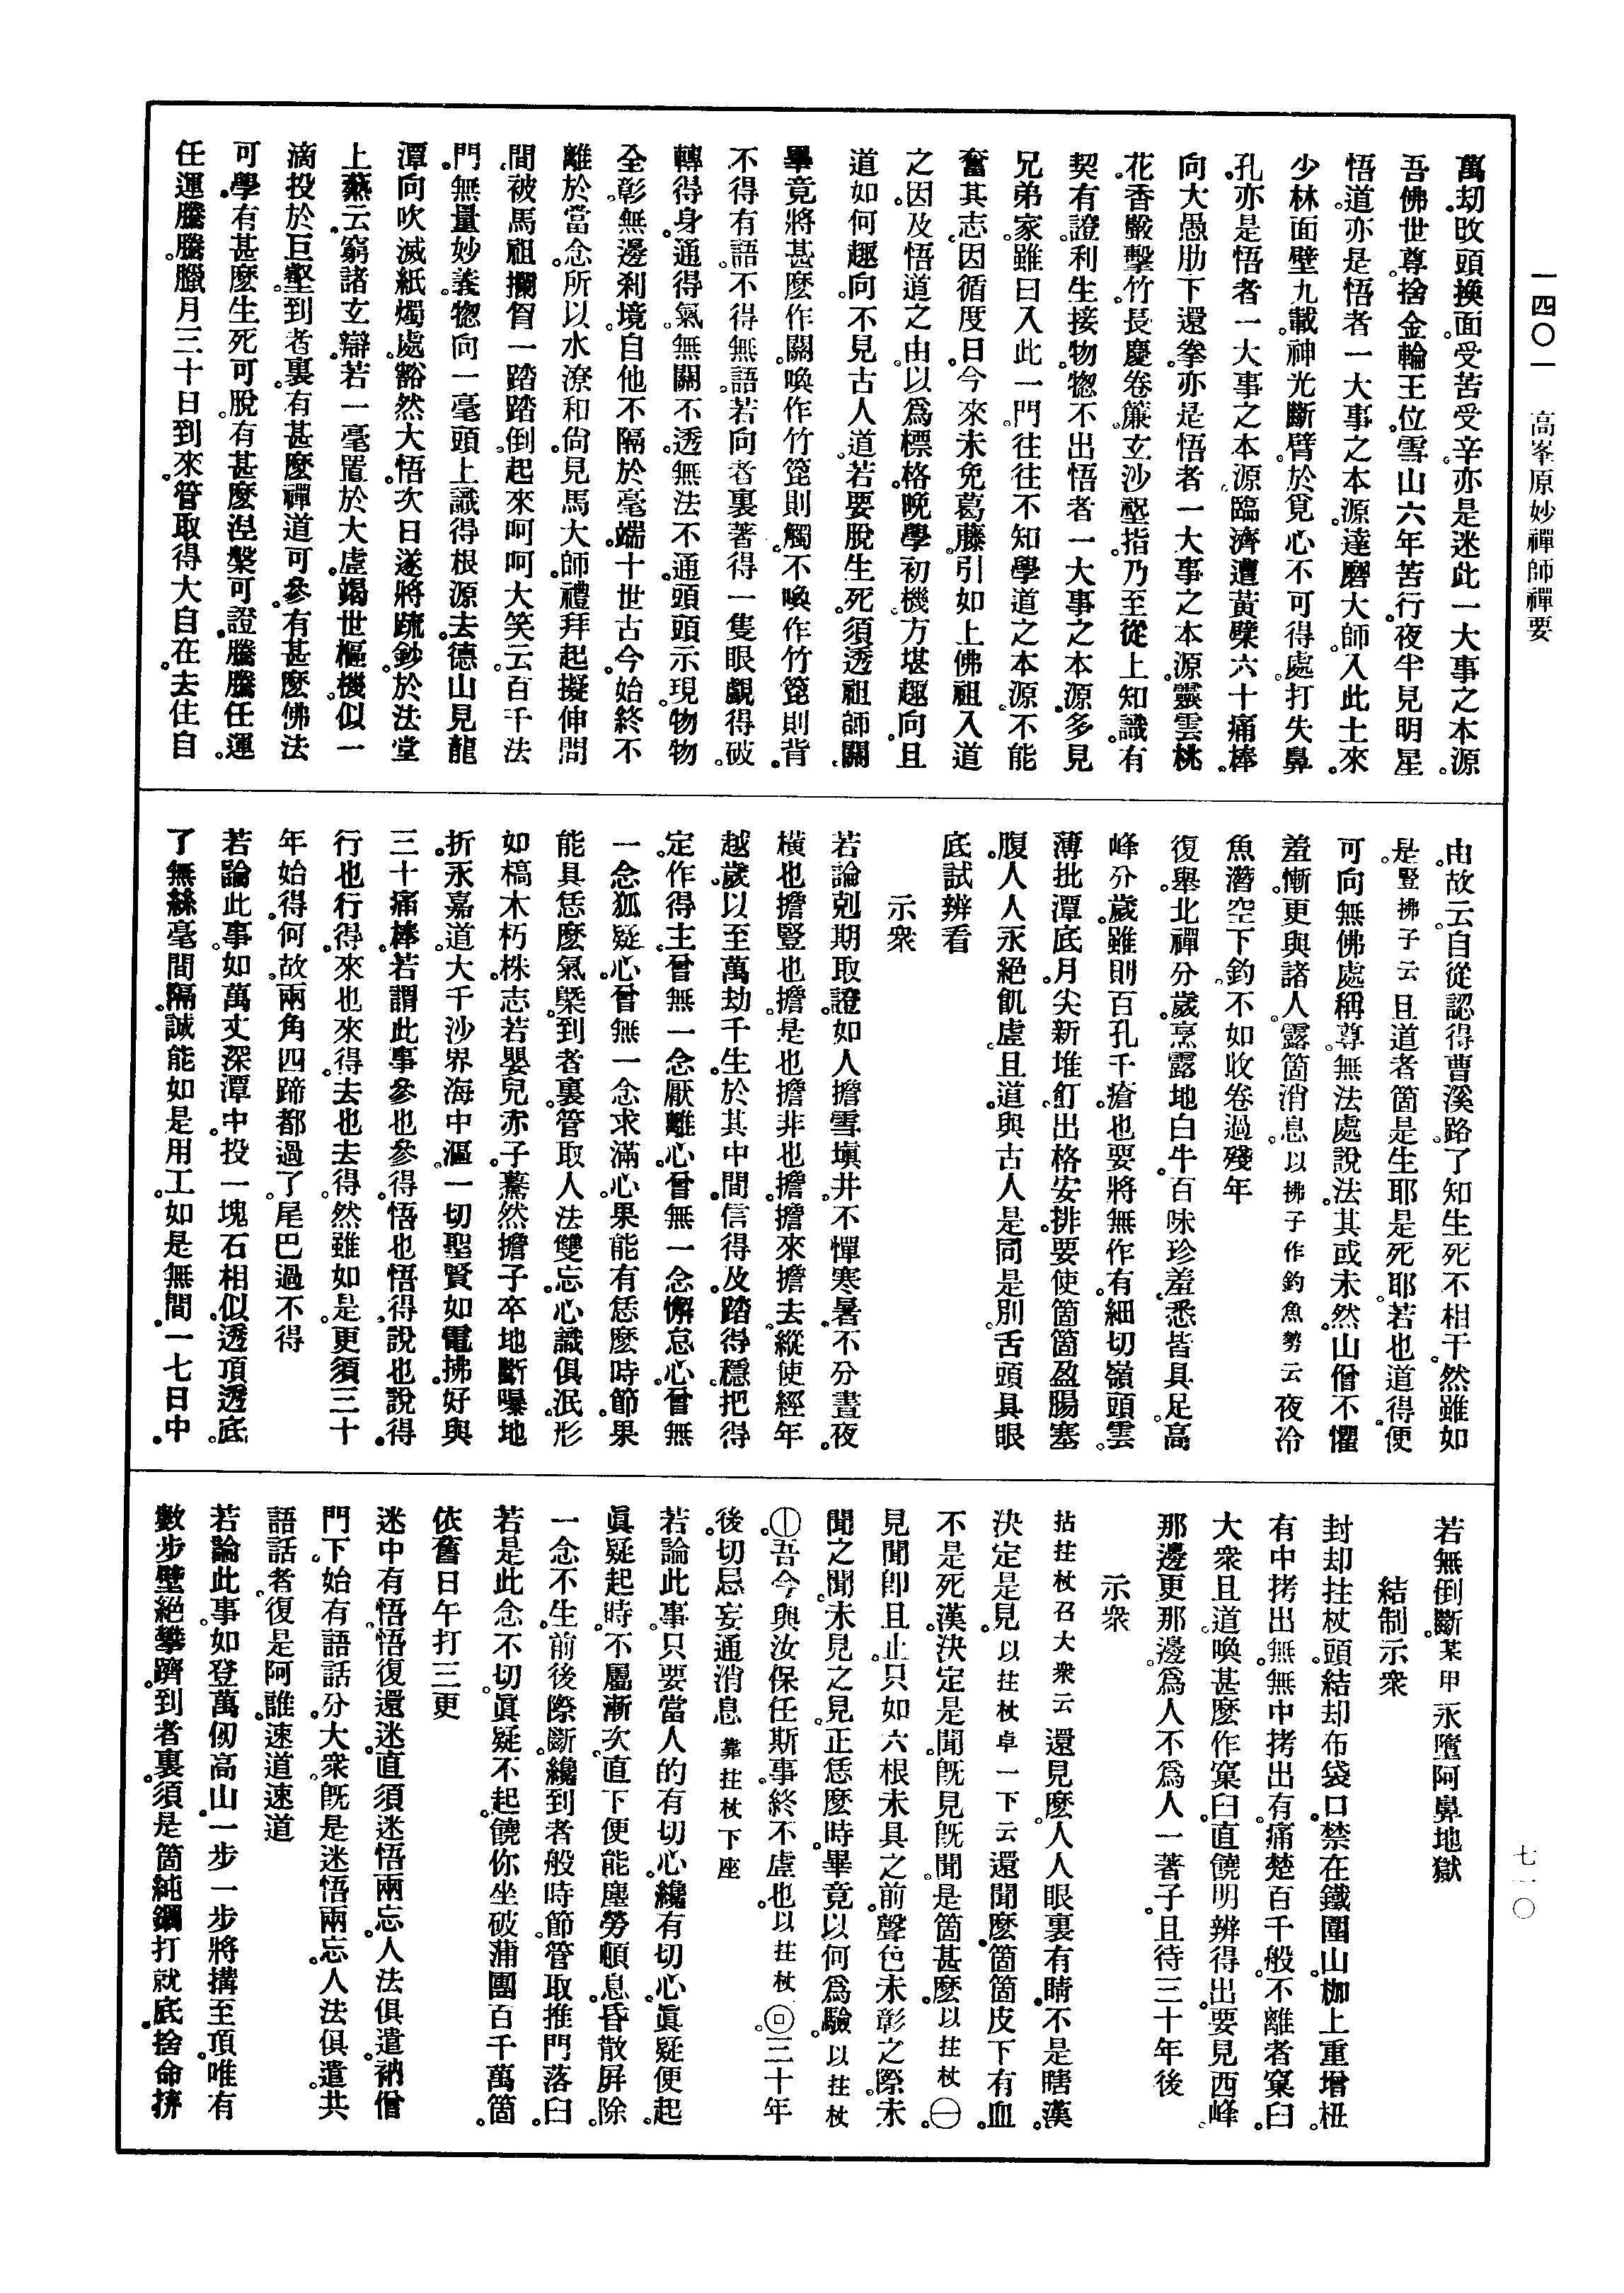 一四〇一　高峯原妙禪師禪要
七一〇
萬劫。改頭換面。受苦受辛。亦是迷此一大事之本源。
吾佛世尊。捨金輪王位。雪山六年苦行。夜半見明星
悟道。亦是悟者一大事之本源。達磨大師。入此土來。
少林面壁九載。神光斷臂。於覓心不可得處。打失鼻
孔。亦是悟者一大事之本源。臨濟遭黃檗六十痛棒。
向大愚肋下還拳。亦是悟者一大事之本源。靈雲桃
花。香嚴擊竹。長慶卷簾。玄沙䃜指。乃至從上知識。有
契有證。利生接物。惣不出悟者一大事之本源。多見
兄弟家。雖曰入此一門。往往不知學道之本源。不能
奮其志。因循度日。今來未免葛藤。引如上佛祖入道
之因。及悟道之由。以爲標格。晚學初機。方堪趣向。且
道如何趣向。不見古人道。若要脫生死。須透祖師關。
畢竟將甚麽作關。喚作竹篦則觸。不喚作竹篦則背。
不得有語。不得無語。若向者裏著得一隻眼。覷得破。
轉得身。通得氣。無關不透。無法不通。頭頭示現。物物
全彰。無邊剎境。自他不隔於毫端。十世古今。始終不
離於當念。所以水潦和尙。見馬大師。禮拜起。擬伸問
間。被馬祖攔胷一踏踏倒。起來呵呵大笑云。百千法
門。無量妙義。惣向一毫頭上。識得根源去。德山見龍
潭。向吹滅紙燭處。豁然大悟。次日遂將䟽鈔。於法堂
上爇云。窮諸玄辯。若一毫置於大虛。竭世樞機。似一
滴投於巨壑。到者裏。有甚麽禪道可參。有甚麽佛法
可學。有甚麽生死可脫。有甚麽涅槃可證。騰騰任運。
任運騰騰。臘月三十日到來。管取得大自在。去住自
由。故云。自從認得曹溪路。了知生死不相干。然雖如
是。豎拂子云且道者箇是生耶。是死耶。若也道得。便
可向無佛處稱尊。無法處說法。其或未然。山僧不懼
羞慚。更與諸人露箇消息。以拂子作釣魚勢云夜冷
魚潛空下釣。不如收卷過殘年
復舉北禪分歲。烹露地白牛。百味珍羞。悉皆具足。高
峰分歲。雖則百孔千瘡。也要將無作有。細切嶺頭雲。
薄批潭底月。尖新堆飣。出格安排。要使箇箇盈腸塞
腹。人人永絕飢虛。且道與古人是同是別。舌頭具眼
底。試辨看
示衆
若論剋期取證。如人擔雪塡井。不憚寒暑。不分晝夜。
橫也擔。豎也擔。是也擔。非也擔。擔來擔去。縱使經年
越歲。以至萬劫千生。於其中間。信得及。踏得穩。把得
定。作得主。曾無一念厭離心。曾無一念懈怠心。曾無
一念狐疑心。曾無一念求滿心。果能有恁麽時節。果
能具恁麽氣槩。到者裏。管取人法雙忘。心識俱泯。形
如槁木朽株。志若嬰兒赤子。驀然擔子卒地斷。㬥地
折。永嘉道大千沙界海中漚。一切聖賢如電拂。好與
三十痛棒。若謂此事參也參得。悟也悟得。說也說得。
行也行得。來也來得。去也去得。然雖如是。更須三十
年始得。何故。兩角四蹄都過了。尾巴過不得
若論此事。如萬丈深潭中。投一塊石相似。透頂透底。
了無絲毫間隔。誠能如是用工。如是無間。一七日中。
若無倒斷。某甲永墮阿鼻地獄
結制示衆
封却拄杖頭。結却布袋口。禁在鐵圍山。枷上重增杻。
有中拷出無。無中拷出有。痛楚百千般。不離者窠臼。
大衆且道。喚甚麽作窠臼。直饒明辨得出。要見西峰。
那邊更那邊。爲人不爲人。一著子。且待三十年後
示衆
拈拄杖召大衆云還見麽。人人眼裏有睛。不是瞎漢。
決定是見。以拄杖卓一下云還聞麽。箇箇皮下有血。
不是死漢。決定是聞。旣見旣聞。是箇甚麽。以拄杖㊀。
見聞卽且止。只如六根未具之前。聲色未彰之際。未
聞之聞。未見之見。正恁麽時。畢竟以何爲驗。以拄杖
⦶。吾今與汝保任斯事。終不虛也。以拄杖◎。三十年
後。切忌妄通消息　靠拄杖下座
若論此事。只要當人的有切心。纔有切心。眞疑便起。
眞疑起時。不屬漸次。直下便能塵勞頓息。昏散屏除。
一念不生。前後際斷。纔到者般時節。管取推門落臼。
若是此念不切。眞疑不起。饒你坐破蒲團百千萬箇。
依舊日午打三更
迷中有悟。悟復還迷。直須迷悟兩忘。人法俱遣。衲僧
門下。始有語話分。大衆。旣是迷悟兩忘。人法俱遣。共
語話者。復是阿誰。速道速道
若論此事。如登萬仞高山。一步一步。將搆至頂。唯有
數步壁絕攀躋。到者裏。須是箇純鋼打就底。捨命拚